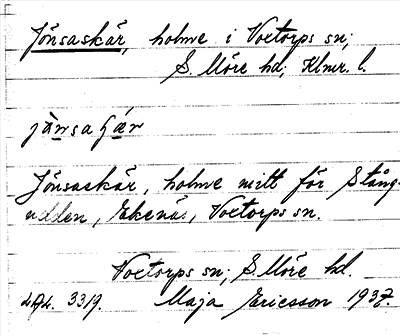 Jönsaskär, holme i Voxtorps sn;
S. Möre hd; Klmr. l.
Jönsaskär, holme mitt för Stång-
udden, Ekenäs, Voxtorps sn.
Voxtorps sn; S. Möre hd.
33/9. Maja Ericsson 1937.